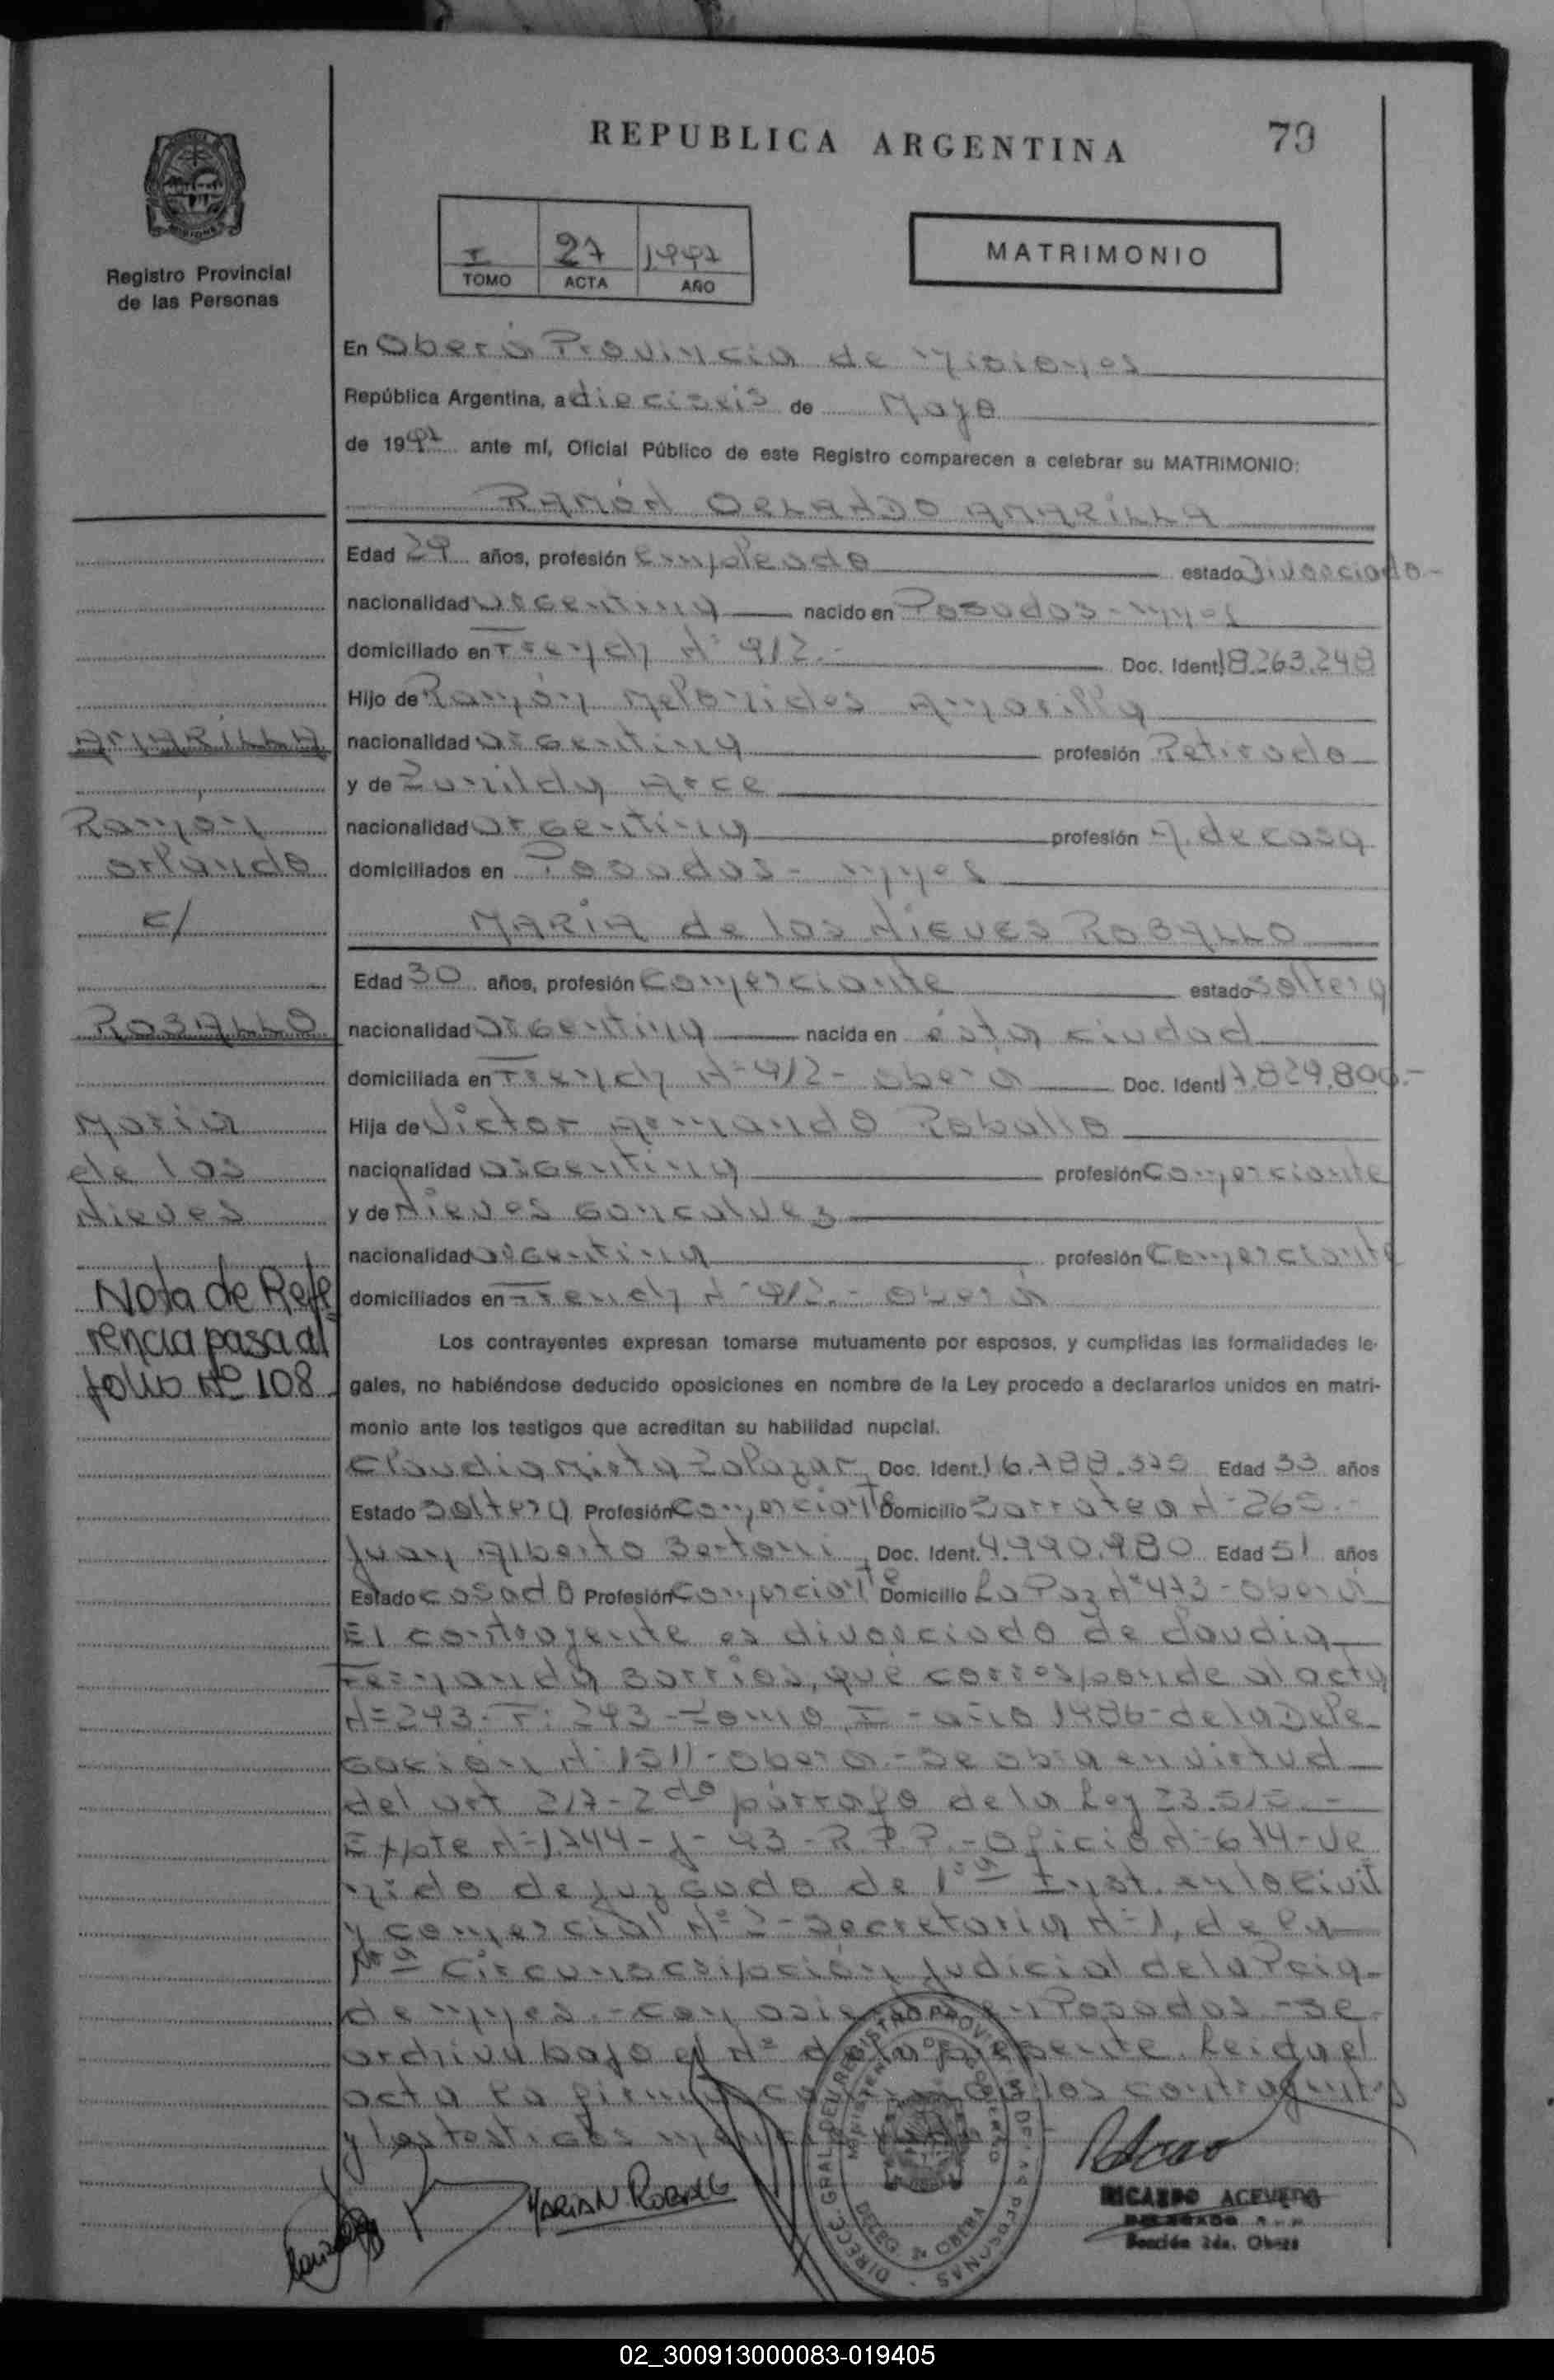 REPUBLICA ARGENTINA
79
Registro Provincial
de las Personas
I 27 1997
TOMO ACTA AÑO
MATRIMONIO
En Oberá Provincia de Misiones
República Argentina, a dieciseis de Mayo
de 1997 ante mí, Oficial Público de este Registro comparecen a celebrar su MATRIMONIO:
RAMÓN ORLANDO AMARILLA
Edad 29 años, profesión empleado estado Divorciado-
nacionalidad argentina nacido en Posadas - Mnes
domiciliado en French N° 912.- Doc. Ident. 18.263.248
Hijo de Ramón Melonides Amarilla
AMARILLA
nacionalidad argentina profesión Retirado
y de Zunilda Arce
Ramon
nacionalidad argentina profesión A. de casa
orlando
domiciliados en Posadas - Mnes
c/
MARIA de los NIEVES ROBALLO
Edad 30 años, profesión Comerciante estado soltera
ROBALLO
nacionalidad argentina nacida en ésta ciudad
domiciliada en French N° 912 - oberá Doc. Ident. 17.829.800.-
Maria
Hija de Victor Armando Roballo
de los
nacionalidad argentina profesión Comerciante
Nieves
y de Nieves Goncalvez
nacionalidad argentina profesión Comerciante
Nota de Refe
domiciliados en French N° 912.- Oberá
rencia pasa al
Los contrayentes expresan tomarse mutuamente por esposos, y cumplidas las formalidades le-
folio N° 108
gales, no habiéndose deducido oposiciones en nombre de la Ley procedo a declararlos unidos en matri-
monio ante los testigos que acreditan su habilidad nupcial.
Claudia Mirta Salazar, Doc. Ident. 16. Edad 33 años
Estado soltera Profesión Comerciante Domicilio Sarratea N° 265.-
Juan Alberto Bertoni, Doc. Ident. 4.990.980 Edad 51 años
Estado casado Profesión Comerciante Domicilio La Paz N° 473 - oberá
El contrayente es divorciado de Claudia
Fernanda Barrios, que corresponde al acta
N° 243- F: 243 - Tomo I - año 1986 - de la Dele
gación N° 1511 - oberá.- Se obra en virtud
del art 217 - 2do párrafo de la Ley 23.515.-
Expte N° 1.744-J-93-R.P.P.-oficio N° 674 - ve
nido de juzgado de 1ra Inst. en lo civil
y comercial N° 2 - Secretaria N° 1, de la
1ra Circunscripción judicial de la Pcia-
de Mnes.- con asiento en Posadas - Se
archiva bajo el N° de la presente. Leida el
acta la firman los contrayentes
y los testigos
DIRECC. GRAL. DEL REGISTRO PROVINCIAL DE LAS PERSONAS
MINISTERIO DE GOBIERNO
OBERA
MARIAN ROBALLO
RICARDO ACEVEDO
Sección 2da. Oberá
02_300913000083-019405